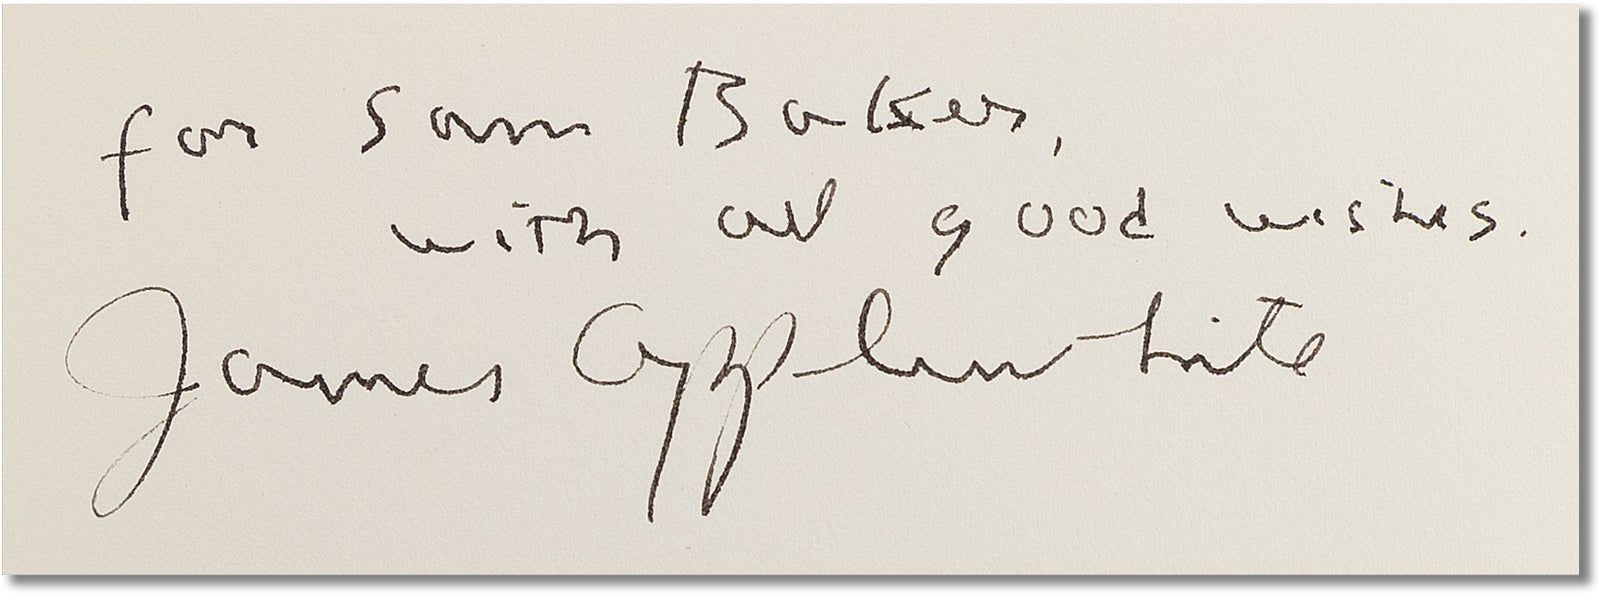 for Sam Baker,
with all good wishes.
James Applewhite